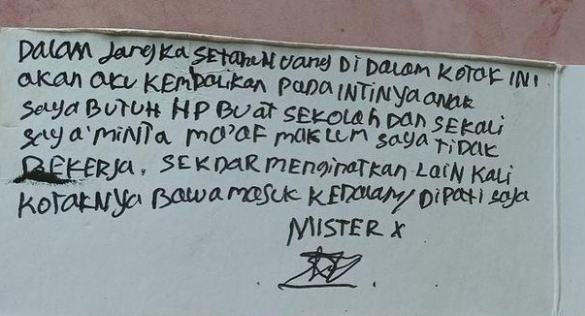 Dalam Jangka SETAHUN uang Di Dalam KOTAK INI
akan aku KEMBALIKAN PADA INTINYA anak
saya BUTUH HP BUAT SEKOLAH DAN SEKALI
saya MINTA MA'AF MAKLUM saya TIDAK
BEKERJA. SEKDAR MENGINATKAN LAIN KALI
KOTAKNYA BAWA MASUK KEDALAM/
MISTER X